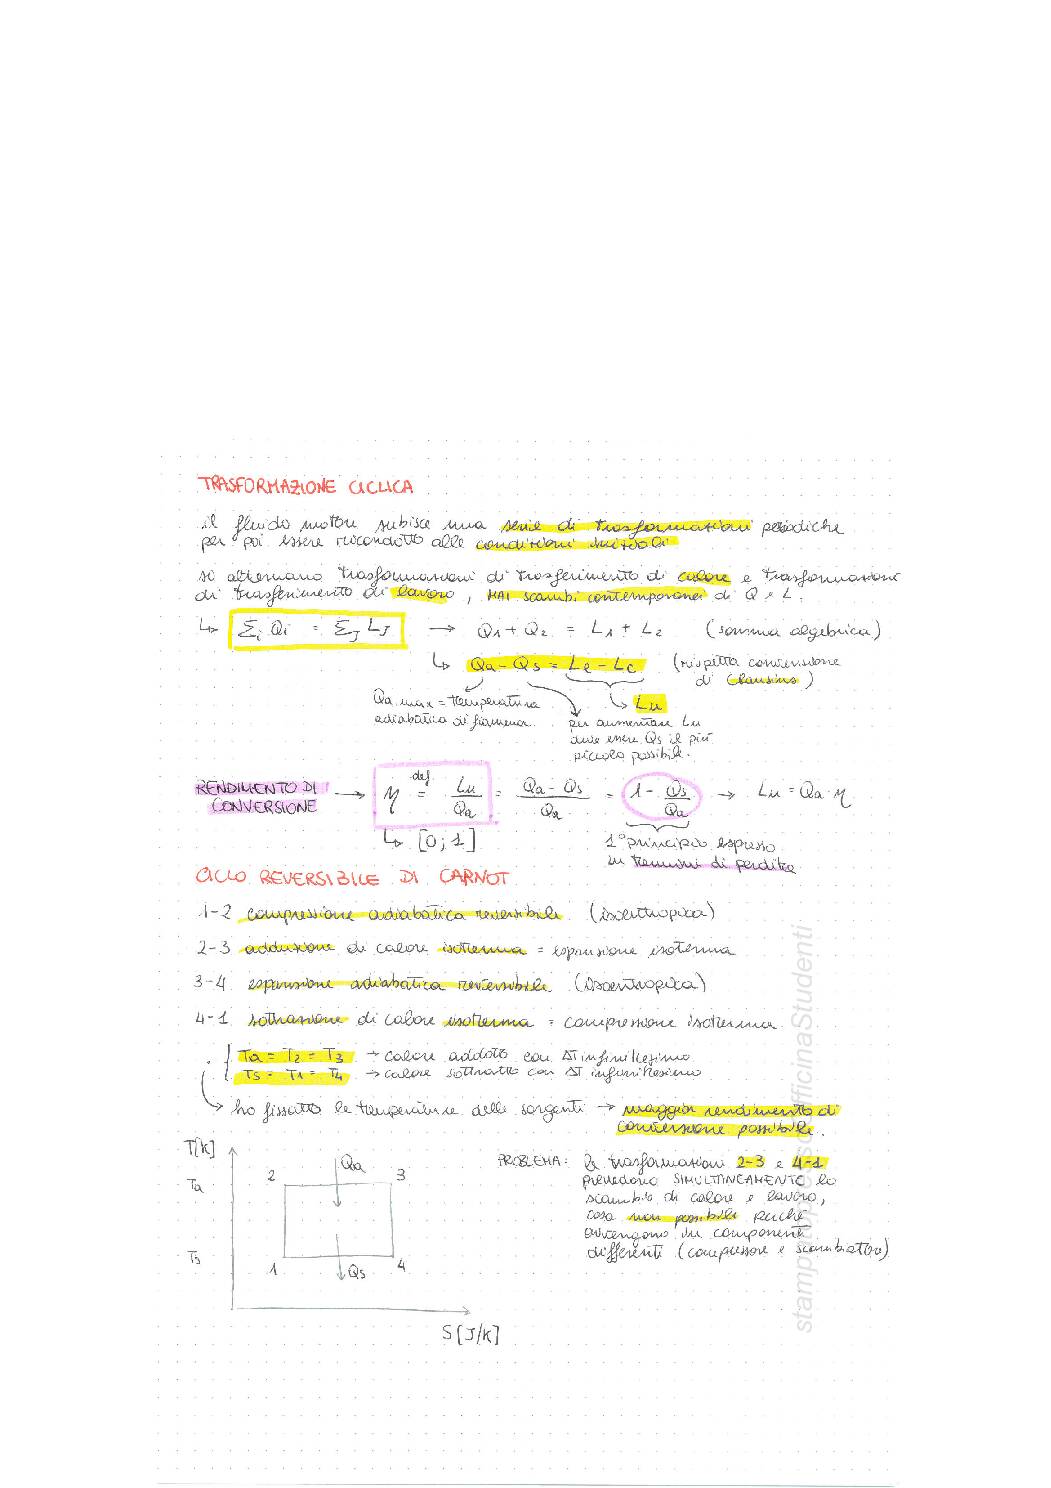 TRASFORMAZIONE CICLICA
il fluido motore subisce una serie di trasformazioni periodiche
per poi essere ricondotto alle condizioni iniziali
si alternano trasformazioni di trasferimento di calore e trasformazioni
di trasferimento di lavoro, MAI scambi contemporanei di Q e L.
↳ Σi Qi = Σj Lj → Q1 + Q2 = L1 + L2 (somma algebrica)
↳ Qa - Qs = Le - Lc (rispetta convenzione
di Clausius)
Qa max = temperatura
adiabatica di fiamma.
↳ Lu
per aumentare Lu
deve essere Qs il più
piccolo possibile.
RENDIMENTO DI
CONVERSIONE
→ η def = Lu/Qa = (Qa - Qs)/Qa = 1 - Qs/Qa → Lu = Qa · η
↳ [0; 1]
1° principio espresso
in termini di perdite
CICLO REVERSIBILE DI CARNOT
1-2 compressione adiabatica reversibile (isentropica)
2-3 adduzione di calore isoterma = espansione isoterma
3-4 espansione adiabatica reversibile (isoentropica)
4-1 sottrazione di calore isoterma = compressione isoterma
Ta = T2 = T3 → calore addotto con ΔT infinitesimo
Ts = T1 = T4 → calore sottratto con ΔT infinitesimo
ho fissato le temperature delle sorgenti → maggior rendimento di
conversione possibile.
T[K]
Ta
Ts
2
3
1
4
Qa
Qs
S [J/K]
PROBLEMA: le trasformazioni 2-3 e 4-1
prevedono SIMULTANEAMENTE lo
scambio di calore e lavoro,
cosa non possibile perché
avvengono in componenti
differenti (compressore e scambiatore)